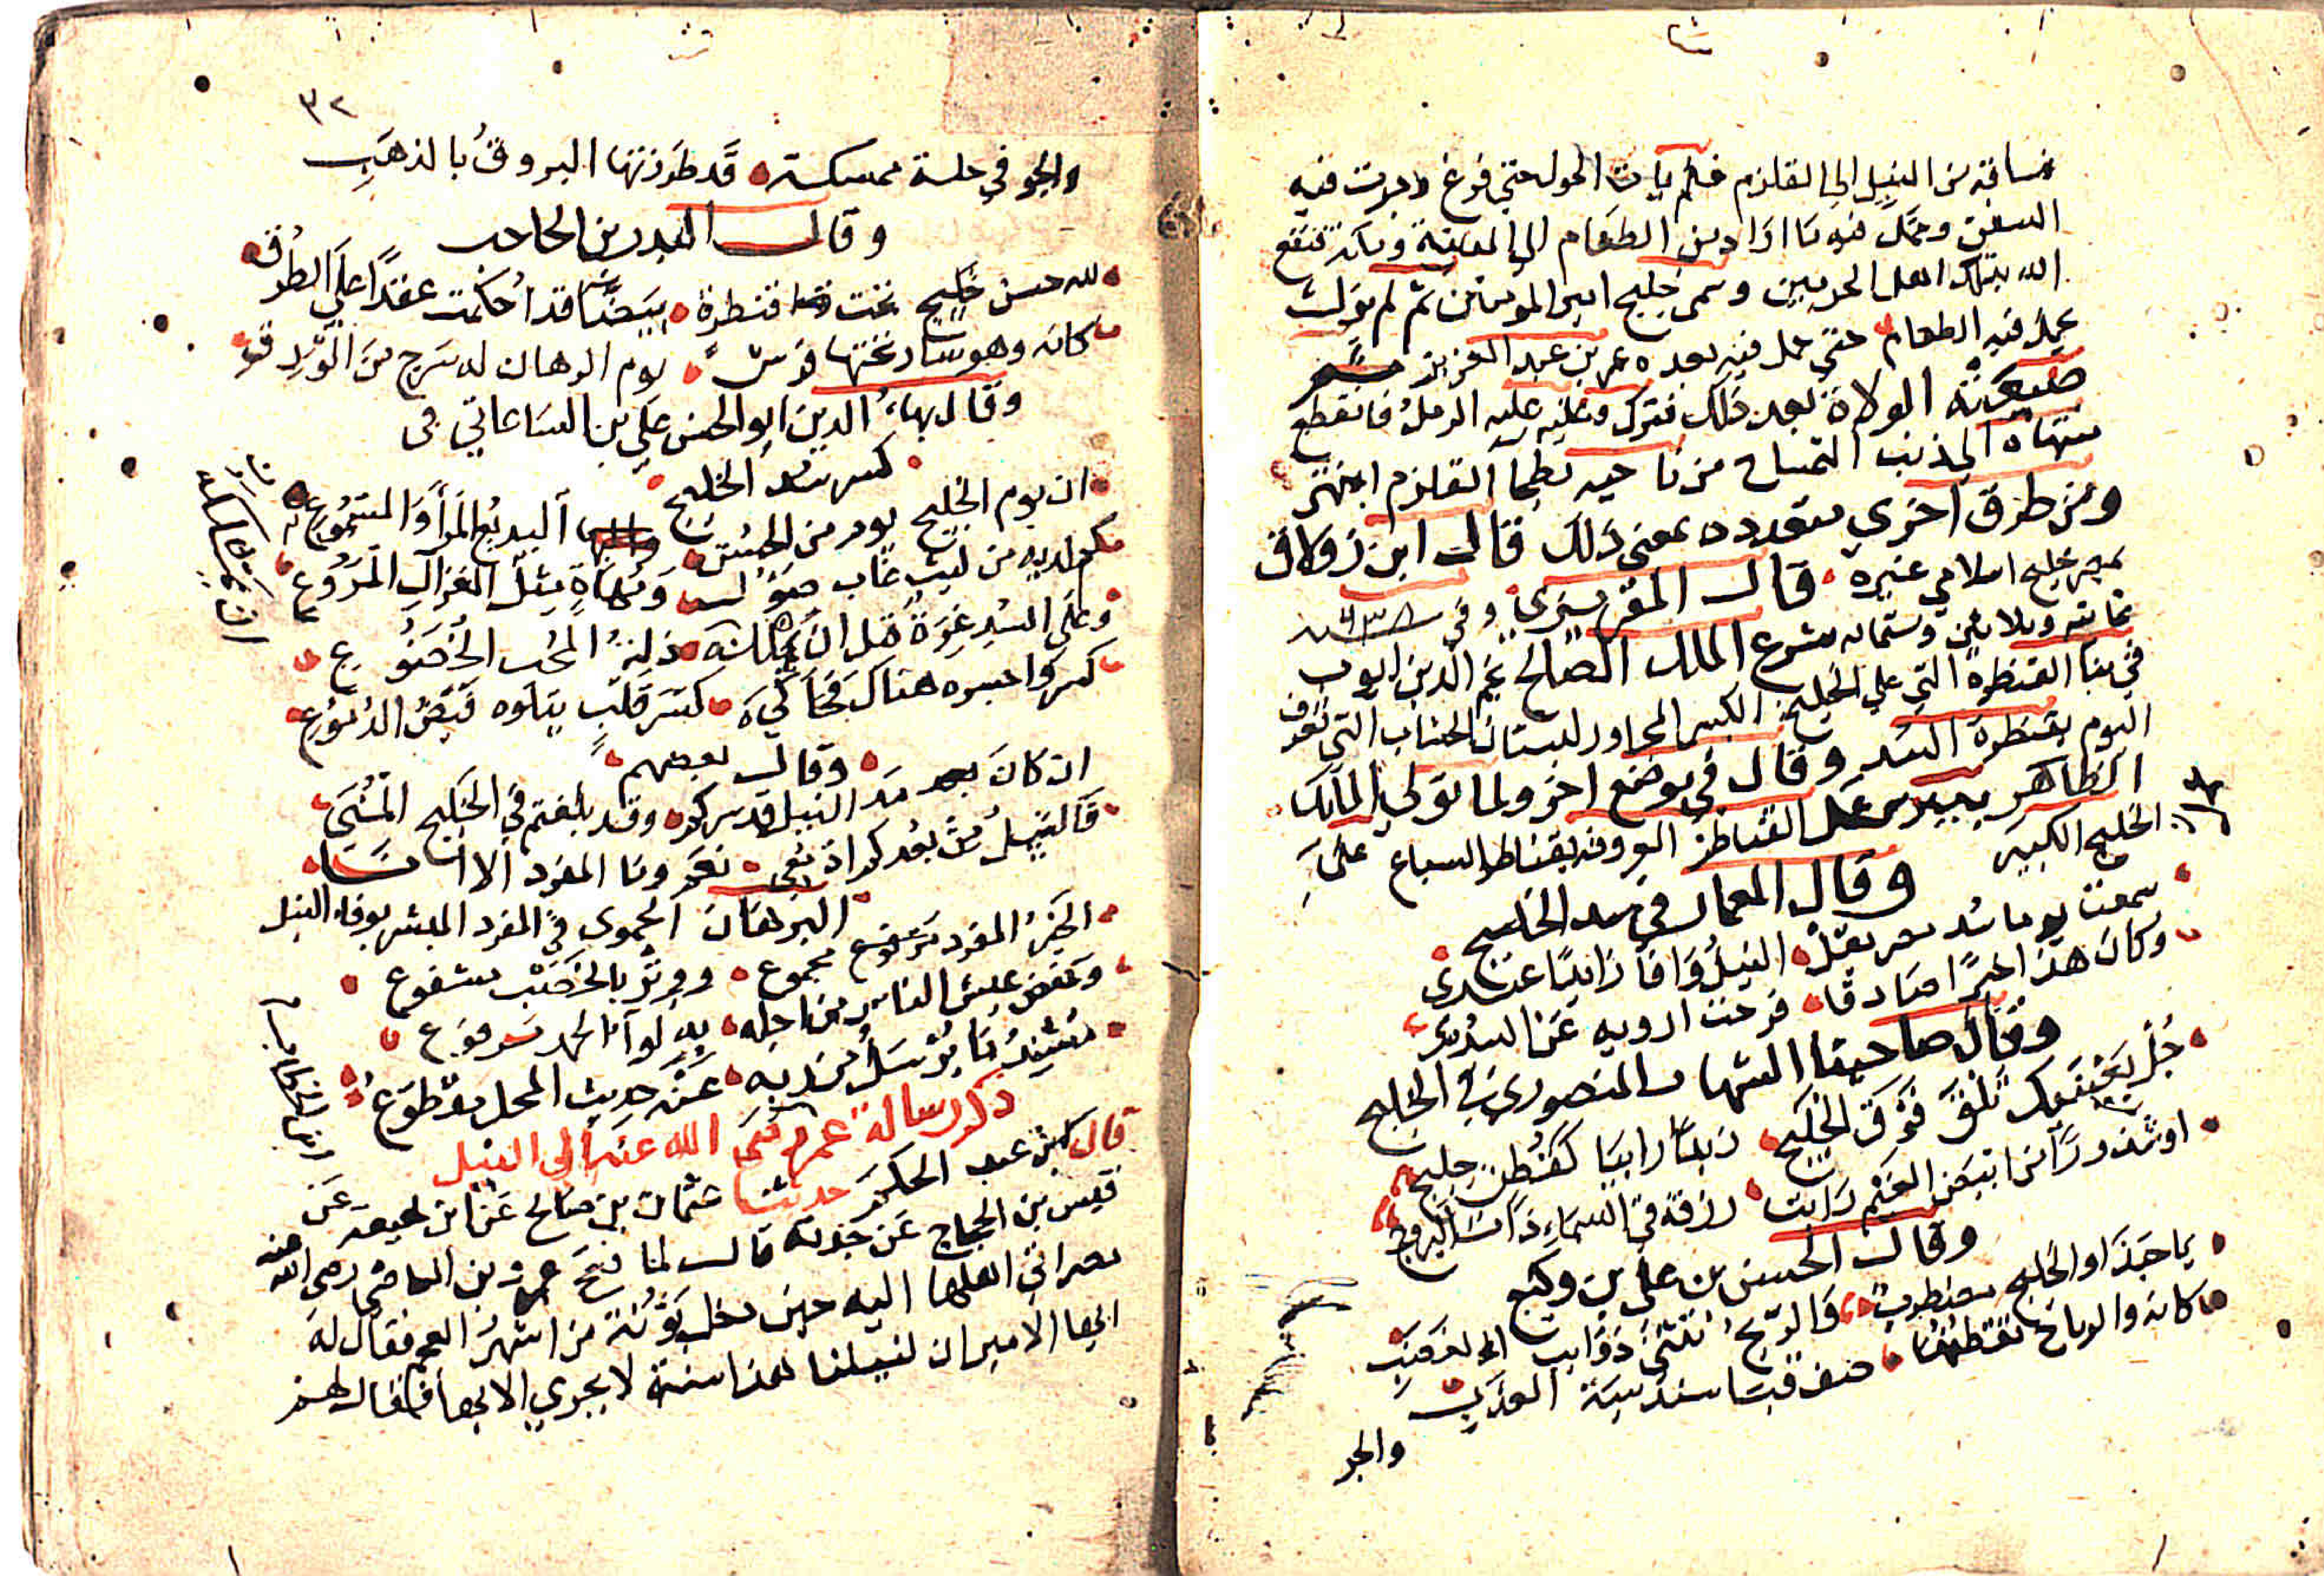 فساقه من النيل الي القلزم فلم يات الحول حتي فرغ وجرت فيه
السفن وحمل فيه ما اراد من الطعام الي المدينة ومكة فنفع
الله بذلك اهل الحرمين وسمي خليج امير المومنين ثم لم يزل
يحمل فيه الطعام حتي حمل فيه بعده عمر بن عبد العزيز ثم
ضيعته الولاة بعد ذلك فترك وغلب عليه الرمل فانقطع
منتهاه الي ذنب التمساح من ناحيه بطحا القلزم انتهي
ومن طرق اخري متعدده بمعني ذلك قال ابن زولاق
بمصر خليج اسلامي غيره قال المقريزي وفي سنه ٦٣٨
ثمانيه وثلاثين وستمايه شرع الملك الصالح نجم الدين ايوب
في بنا القنطرة التي علي الخليج الكبير المجاور لبستان الخشاب التي تعرف
اليوم بقنطرة السد وقال في موضع اخر ولما تولي الملك
الظاهر بيبرس عمل القناطر المعروفه بقناطر السباع علي
الخليج الكبير
وقال المعمار في سد الخليج
سمعت يوما سد مصر يقل النيل وافا زايدا عندي
وكان هذا خبرا صادقا فرحت ارويه عن السدي
وقال صاحبنا الشهاب المنصوري في الخليج
جل بعينيك تلق فوق الخليج زبدا رابيا كقطن حليج
او شذورا من ابيض الغيم رانت زرقة في السماء ذات البروج
وقال الحسن بن علي بن وكيع
يا حبذا والخليج مضطرب والريح تثني ذوايب القصب
كانه والرياح تعطفه صف قنا سندسية العذب
والجو
٣٢
والجو في حلة ممسكة قد طرزتها البروق بالذهب
وقال البدر بن الحاجب
لله حسن خليج تحت قنطرة بيضا قد احكمت عقدا علي الطرق
كانه وهو سار تحتها فرس يوم الرهان له سرج من الورق
وقال بهاء الدين ابو الحسن علي بن الساعاتي في
كسر سد الخليج
ان يوم الخليج يوم من الحسن البديع المرأ والمسموع
كم لديه من ليث غاب صؤول ومهاة مثل الغزال المروع
وعلي السد عزة قبل ان تملكه ذلة المحب الخضوع
كسروا جسره هناك فحاكي كسر قلب يتلوه فيض الدموع
وقال بعضهم
ان كان بعد مد النيل قد سركم وقد بلغتم في الخليج المني
فالنيل من بعدكم ادمعي وما المفرد الا انا
البرهان الحموي في المفرد المبشر بوفاء النيل
الخبر المفرد مرفوع مجموع ووتر بالخصب مشفوع
وخفض عيش الناس من اجله به لوا الحمد مرفوع
مسند ما يرسل من ربه عنه حديث المحل مقطوع
ذكر رسالة عمر رضي الله عنه الي النيل
قال ابن عبد الحكم حدثنا عثمان بن صالح عن ابن لهيعة عن
قيس بن الحجاج عن حدثه قال لما فتح عمرو بن العاص رضي الله عنه
مصر اتي اهلها اليه حين دخل بؤنة من اشهر العجم فقال له
ايها الامير ان لنيلنا هذا سنة لا يجري الا بها فقال لهم